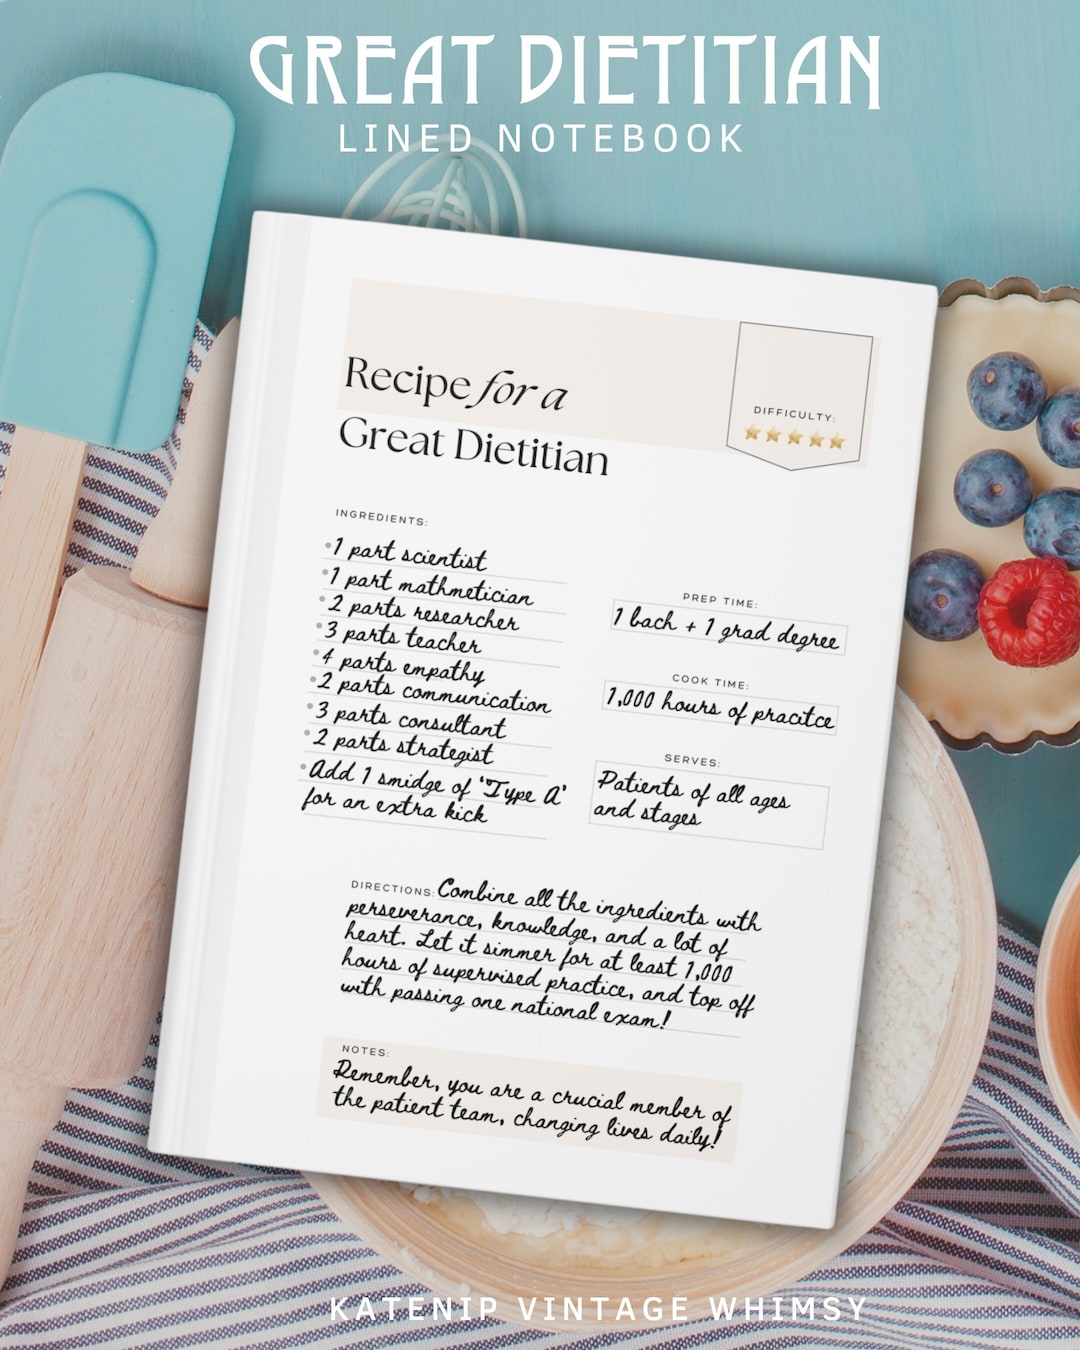 GREAT DIETITIAN
LINED NOTEBOOK
Recipe for a
Great Dietitian
DIFFICULTY:
INGREDIENTS:
1 part scientist
1 part mathmetician
2 parts researcher
3 parts teacher
4 parts empathy
2 parts communication
3 parts consultant
2 parts strategist
Add 1 smidge of 'Type A'
for an extra kick
PREP TIME:
1 bach + 1 grad degree
COOK TIME:
1,000 hours of pracitce
SERVES:
Patients of all ages
and stages
DIRECTIONS: Combine all the ingredients with
perseverance, knowledge, and a lot of
heart. Let it simmer for at least 1,000
hours of supervised practice, and top off
with passing one national exam!
NOTES:
Remember, you are a crucial member of
the patient team, changing lives daily!
KATENIP VINTAGE WHIMSY